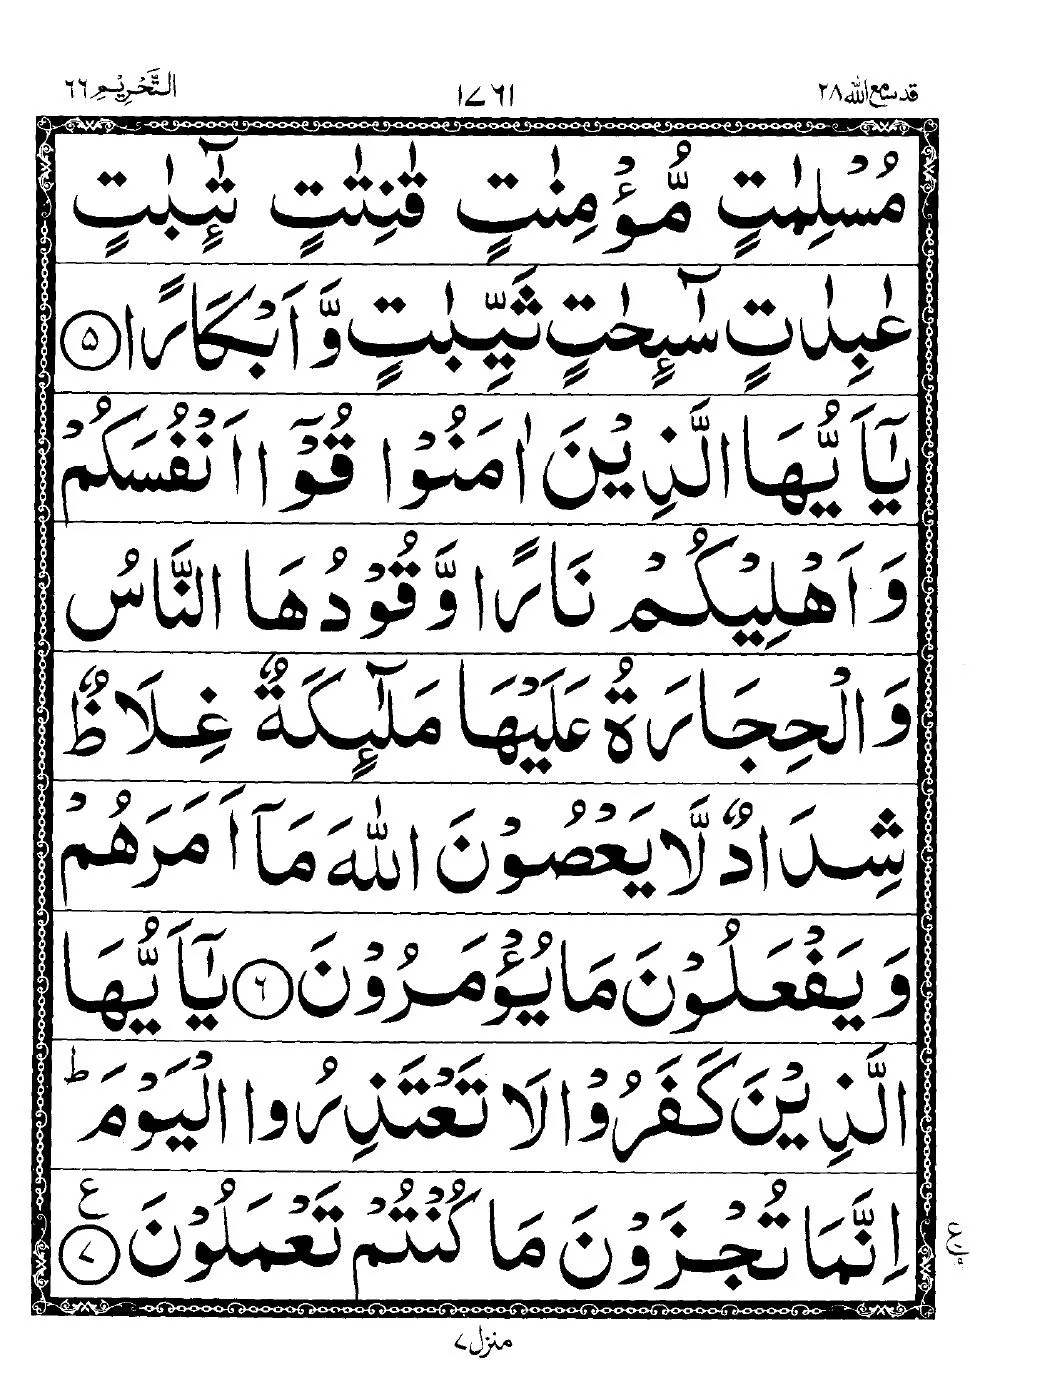 قد سمع الله ٢٨
١٧٦١
التَّحْرِيْمِ ٦٦
مُسْلِمٰتٍ مُّؤْمِنٰتٍ قٰنِتٰتٍ تٰٓئِبٰتٍ
عٰبِدٰتٍ سٰٓئِحٰتٍ ثَيِّبٰتٍ وَّاَبْكَارًا ۵
يٰٓاَيُّهَا الَّذِيْنَ اٰمَنُوْا قُوْٓا اَنْفُسَكُمْ
وَاَهْلِيْكُمْ نَارًا وَّقُوْدُهَا النَّاسُ
وَالْحِجَارَةُ عَلَيْهَا مَلٰٓئِكَةٌ غِلَاظٌ
شِدَادٌ لَّا يَعْصُوْنَ اللّٰهَ مَآ اَمَرَهُمْ
وَيَفْعَلُوْنَ مَا يُؤْمَرُوْنَ ۶ يٰٓاَيُّهَا
الَّذِيْنَ كَفَرُوْا لَا تَعْتَذِرُوا الْيَوْمَ ؕ
اِنَّمَا تُجْزَوْنَ مَا كُنْتُمْ تَعْمَلُوْنَ ۷ ع
منزل ٧